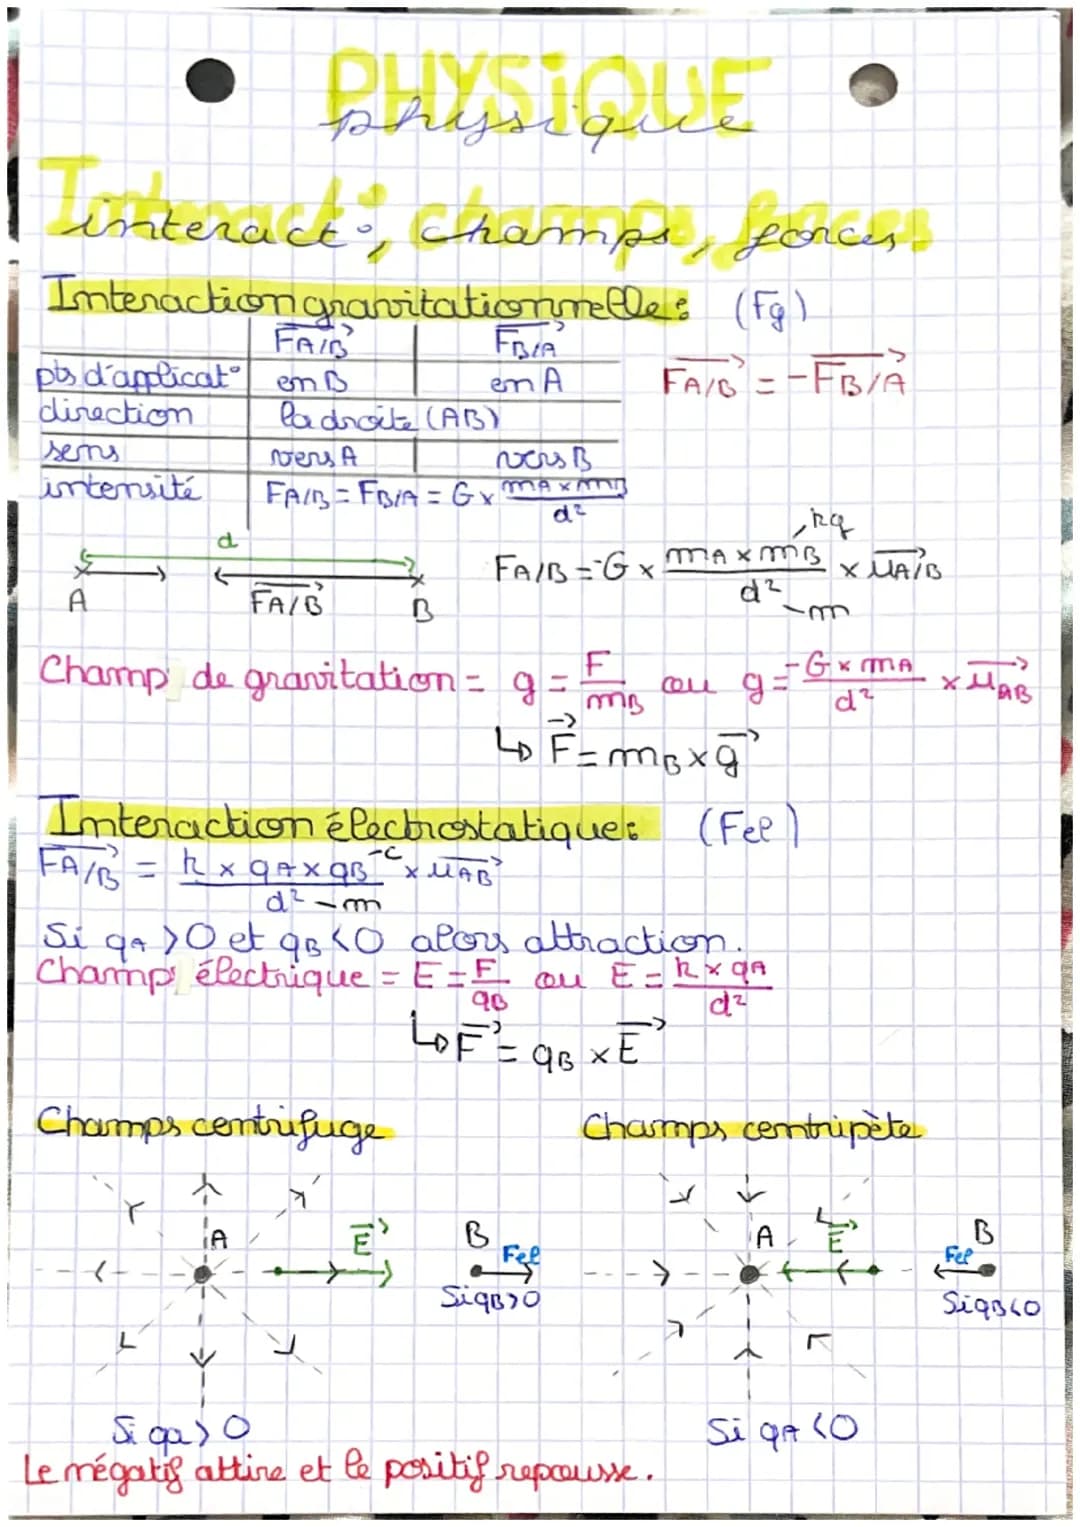 PHYSIQUE
physique
Interact°, champs, forces
interact°, champs, forces.
Interaction gravitationnelle : (Fg)
FA/B FB/A
pts d'applicat° en B en A
FA/B = -FB/A
direction la droite (AB)
sens vers A vers B
intensité FA/B = FB/A = G x mA x mB / d²
d
A FA/B B
FA/B = -G x mA x mB / d² x uA/B
kg
m
Champ de gravitation = g = F / mB ou g = -G x mA / d² x uAB
↳ F = mB x g
Interaction électrostatique : (Fel)
FA/B = k x qA x qB -C / d² -m x uAB
Si qA >0 et qB <0 alors attraction.
Champ électrique = E = F / qB ou E = k x qA / d²
↳ F = qB x E
Champs centrifuge Champs centripète
A E B Fel
Si qB>0
A E B Fel
Si qB<0
Si qa > 0 Si qA <0
Le négatif attire et le positif repousse.